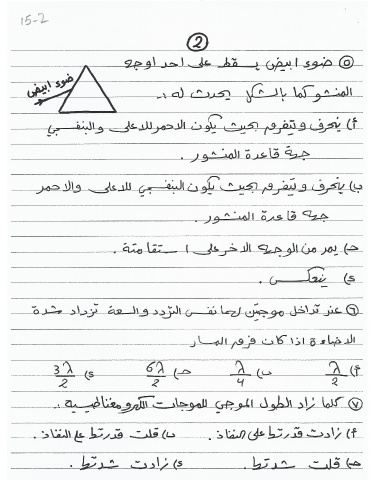 15-2
2
٥) ضوء ابيض يسقط على احد اوجه
المنشور كما بالشكل يحدث له :-
ضوء ابيض
أ) ينحرف ويتفرق بحيث يكون الاحمر للاعلى والبنفسجي
جهة قاعدة المنشور.
ب) ينحرف ويتفرق بحيث يكون البنفسجي للاعلى والاحمر
جهة قاعدة المنشور.
ج) يمر من الوجه الاخر على استقامته.
د) ينعكس.
٦) عند تداخل موجتين لهما نفس التردد والسعة تزداد شدة
الاضاءة اذا كان فرق المسار
أ) λ/2 ب) λ/4 ج) 6λ/2 د) 3λ/2
٧) كلما زاد الطول الموجي للموجات الكهرومغناطيسية :-
أ) زادت قدرتها على النفاذ. ب) قلت قدرتها على النفاذ.
ج) قلت شدتها. د) زادت شدتها.